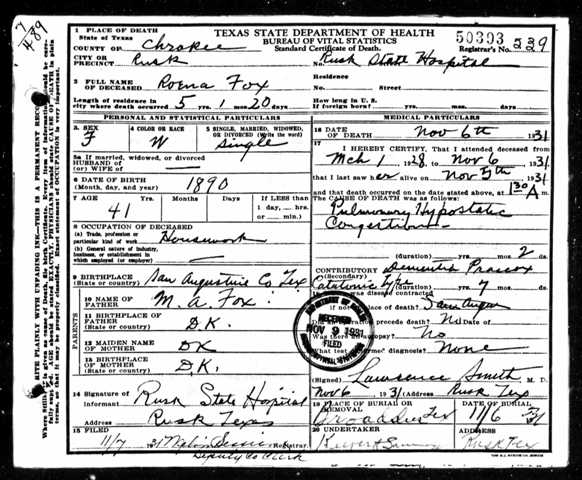 7/489
TEXAS STATE DEPARTMENT OF HEALTH
BUREAU OF VITAL STATISTICS
Standard Certificate of Death.
50393
Registrar's No. 239
1 PLACE OF DEATH
State of Texas
COUNTY OF Chrokee
CITY OR PRECINCT Rusk No. Rusk State Hospital
2 FULL NAME OF DECEASED Roena Fox Residence
Length of residence in city where death occurred 5 yrs. 1 mo. 20 days. How long in U. S. If foreign born? yrs. mos. days.
PERSONAL AND STATISTICAL PARTICULARS
3 SEX F
4 COLOR OR RACE W
5 SINGLE, MARRIED, WIDOWED, OR DIVORCED (Write the word) Single
5a If married, widowed, or divorced
HUSBAND of
(or) WIFE of
6 DATE OF BIRTH 1890
(Month, day, and year)
7 AGE 41 Months Days If LESS than 1 day, hrs. or min.
8 OCCUPATION OF DECEASED
(a) Trade, profession or particular kind of work Housework
(b) General nature of industry, business, or establishment in which employed (or employer)
9 BIRTHPLACE San Augustine Co Tex
(State or country)
PARENTS
10 NAME OF FATHER M. A. Fox
11 BIRTHPLACE OF FATHER D.K.
(State or country)
12 MAIDEN NAME OF MOTHER DK
13 BIRTHPLACE OF MOTHER D.K.
(State or country)
14 Signature of Informant Rusk State Hospital
Address Rusk Texas
15 FILED 11/7 31 Registrar.
Deputy Co Clerk
MEDICAL PARTICULARS
16 DATE OF DEATH Nov 6th 1931
17 I HEREBY CERTIFY, That I attended deceased from
Mch 1 1928 to Nov 6 1931
that I last saw her alive on Nov 5th 1931
and that death occurred on the date stated above, at 1:30 A m.
The CAUSE OF DEATH was as follows:
Pulmonary Hypostatic
Congestion
(duration) yrs. mos. 2 ds.
CONTRIBUTORY Dementia Praecox
(Secondary)
Catatonic Type (duration) 7 yrs. mos. ds.
if not place of death? San Augus
Did an operation precede death? No Date of
Was there an autopsy? No
What test confirmed diagnosis? None
(Signed) Lawrence Smith M. D.
Nov 6 1931 Address Rusk Tex
19 PLACE OF BURIAL OR REMOVAL Tex
DATE OF BURIAL 11/6 1931
20 UNDERTAKER
ADDRESS Rusk Tex
DEPARTMENT OF HEALTH
RECEIVED
NOV 9 1931
FILED
BUREAU VITAL STATISTICS